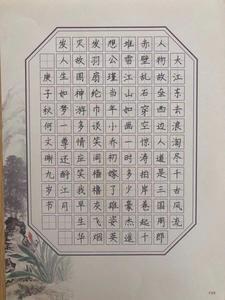 大江东去浪淘尽千古风流
人物故垒西边人道是三国周郎
赤壁乱石穿空惊涛拍岸卷起千
堆雪江山如画一时多少豪杰遥
想公瑾当年小乔初嫁了雄姿英
发羽扇纶巾谈笑间樯橹灰飞烟
灭故国神游多情应笑我早生华
发人生如梦一尊还酹江月
庚子秋何文九岁